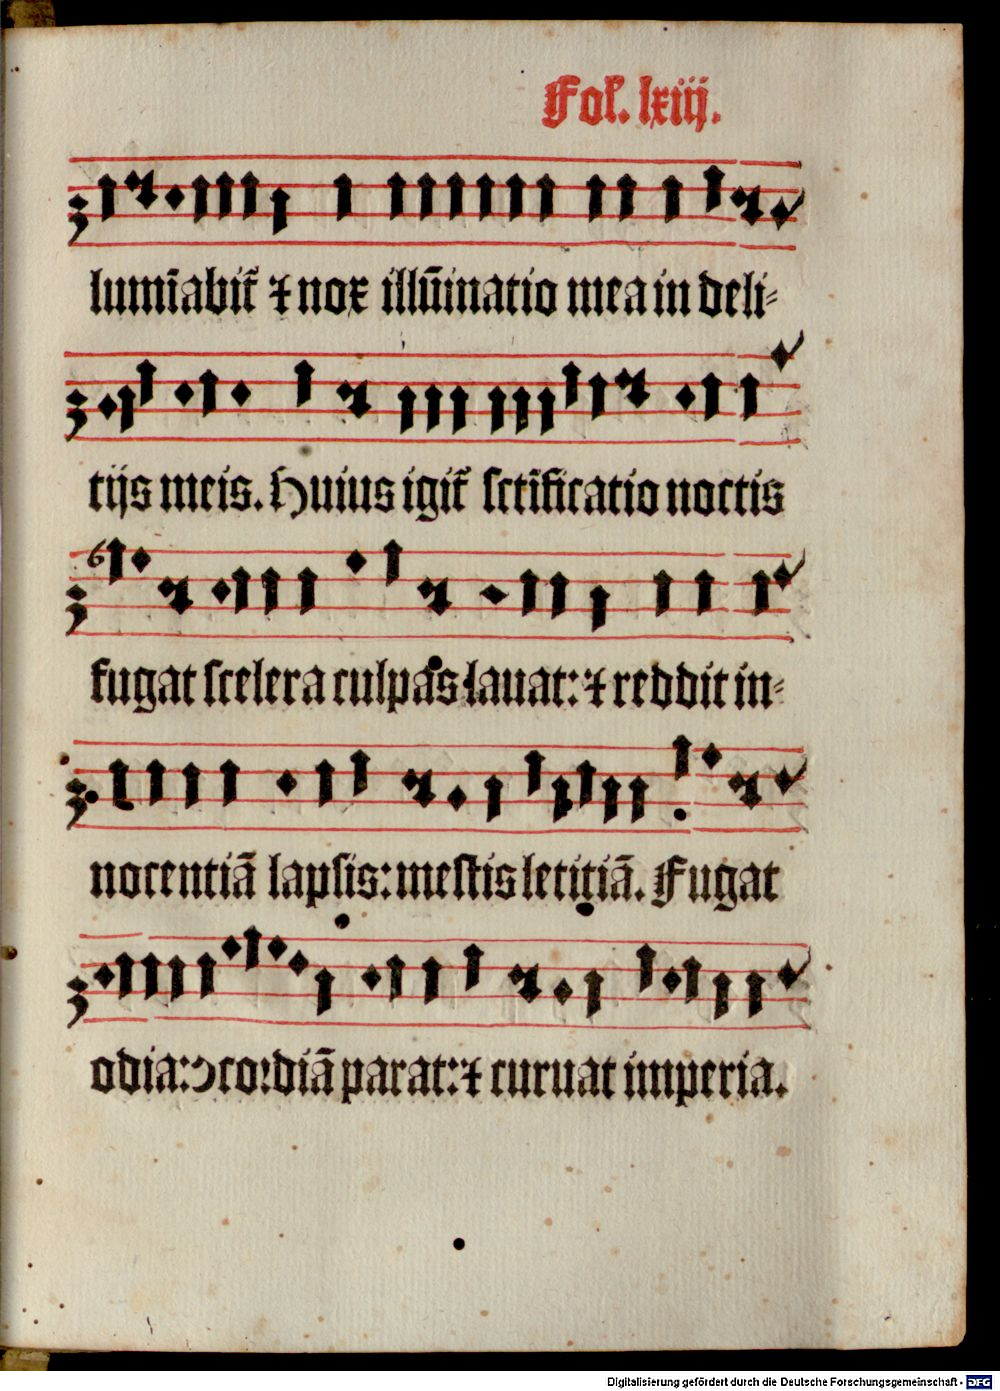 Fol. lxiij.
lumīabit᷑ ⁊ nox illūinatio mea in deli⸗
tijs meis. Huius igit᷑ sctīficatio noctis
fugat scelera culpas lauat: ⁊ reddit in⸗
nocentiā lapsis: mestis letitiā. Fugat
odia: ꝯcordiā parat: ⁊ curuat imperia.
Digitalisierung gefördert durch die Deutsche Forschungsgemeinschaft - DFG